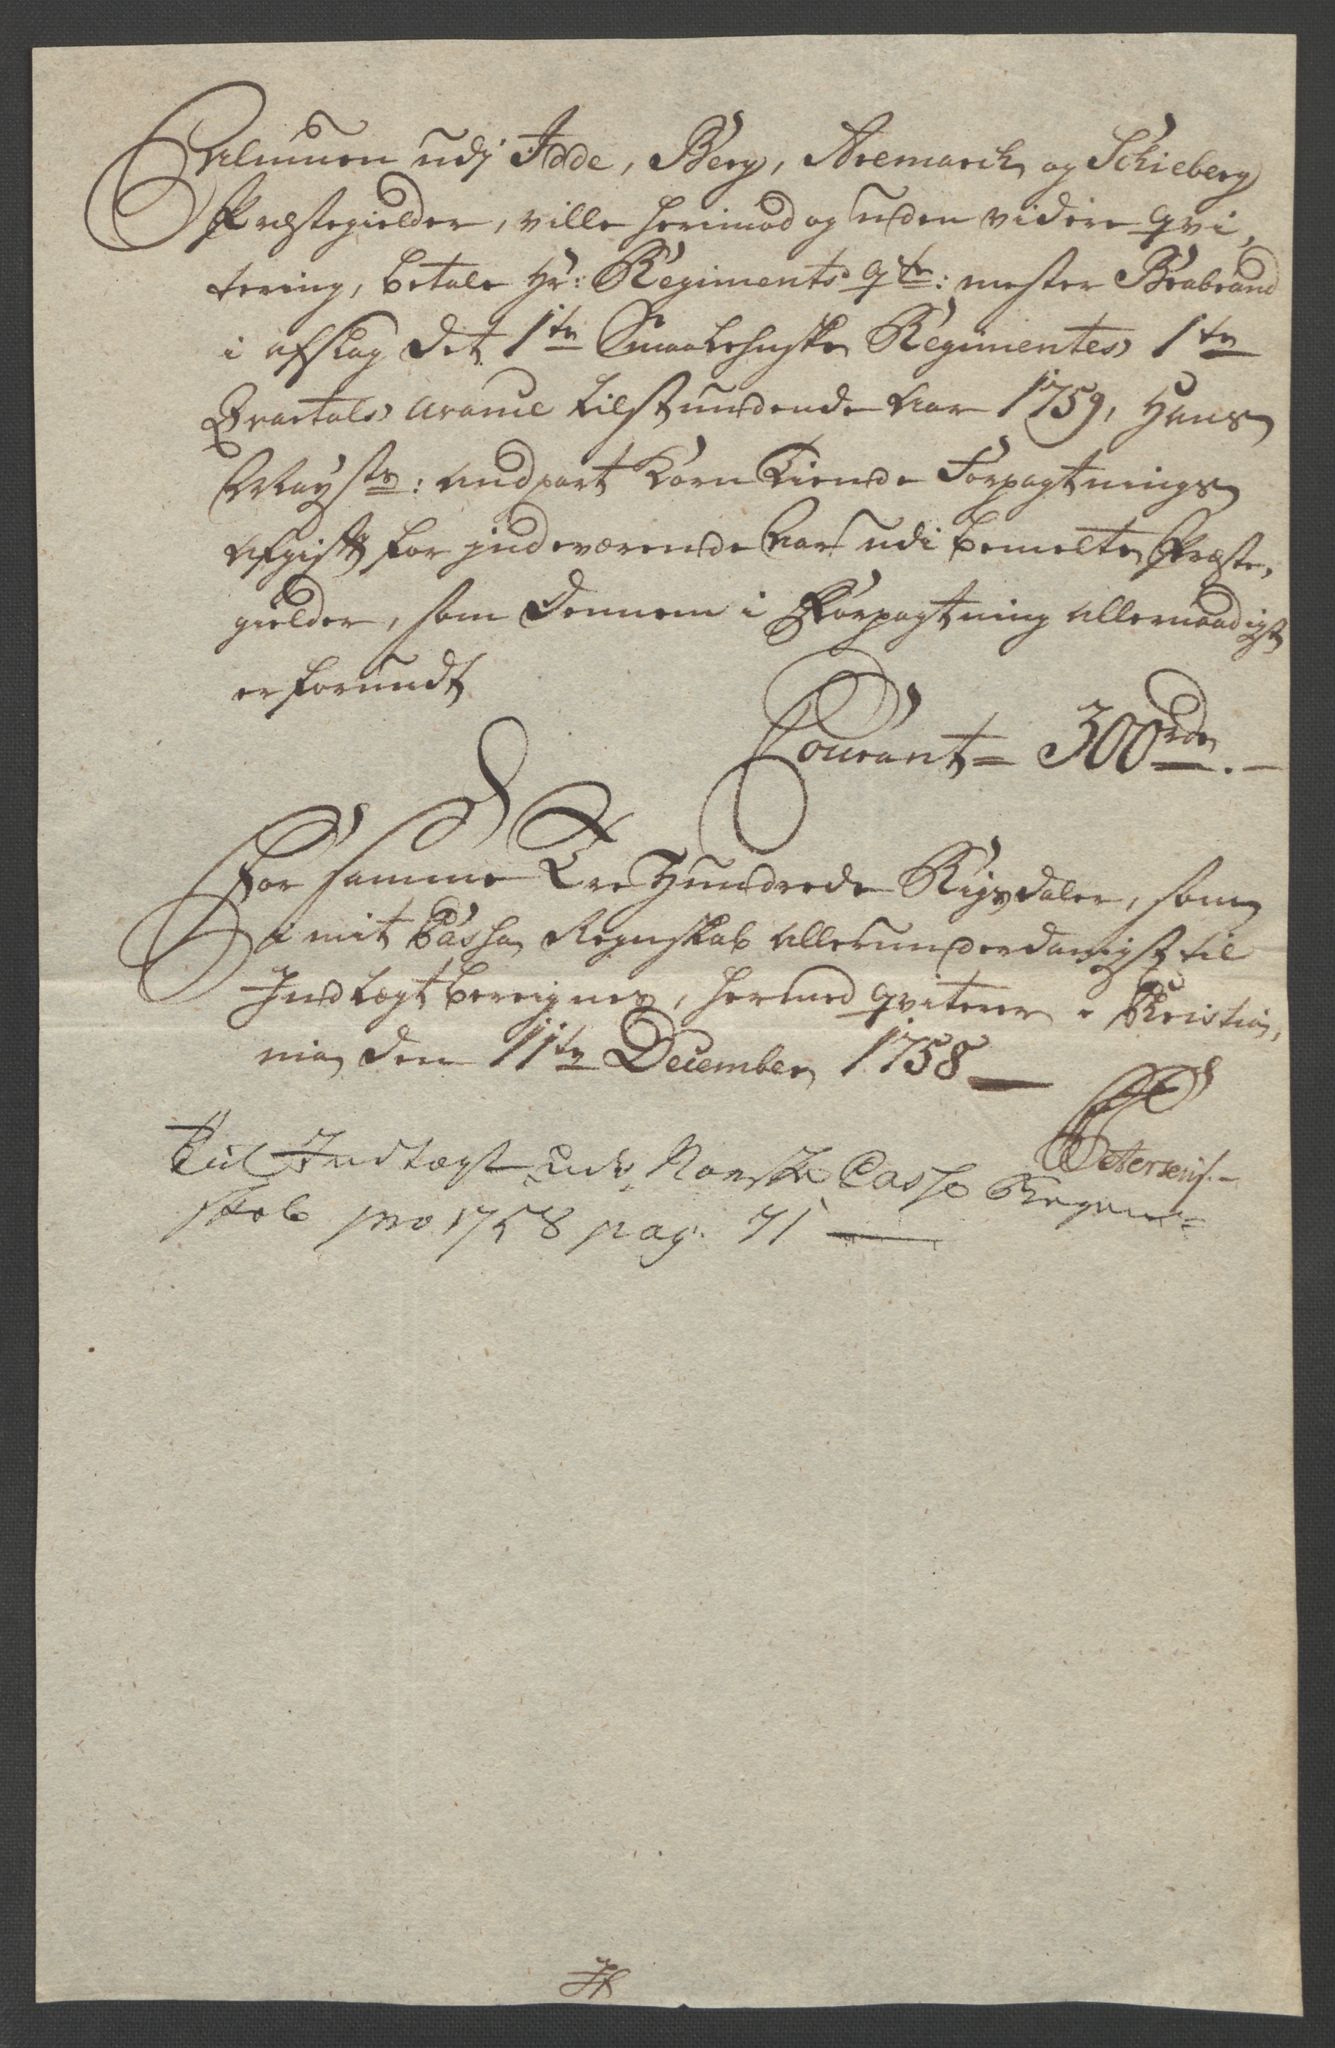 Almuen udj Idde, Berg, Aremarck og Schieberg
Præstegielder, ville herimod og uden videre qvi,
tering, betale Hr: Regiments qtr: mester Brabrand
i afslag det 1te Smaalehnske Regimentes 1te
Qvartals Avance tilstundende Aar 1759, Hans
Mayts: Andpart Korn Tiende Forpagtnings
Afgift for indeværende Aar udi bemelte Præste,
gielder, som dennem i Forpagtning allernaadigst
er forundt
Courant = 300 rdr. —
For samme Tre Hundrede Rigsdaler, som
i mit Cassa Regnskab allerunderdanigst til
Indtægt bereignes, hermed qviterer. Christia,
nia den 11te December 1758
Petersen.
Til Indtægt udi Norske Casse Regen=
skab pro 1758 pag. 71